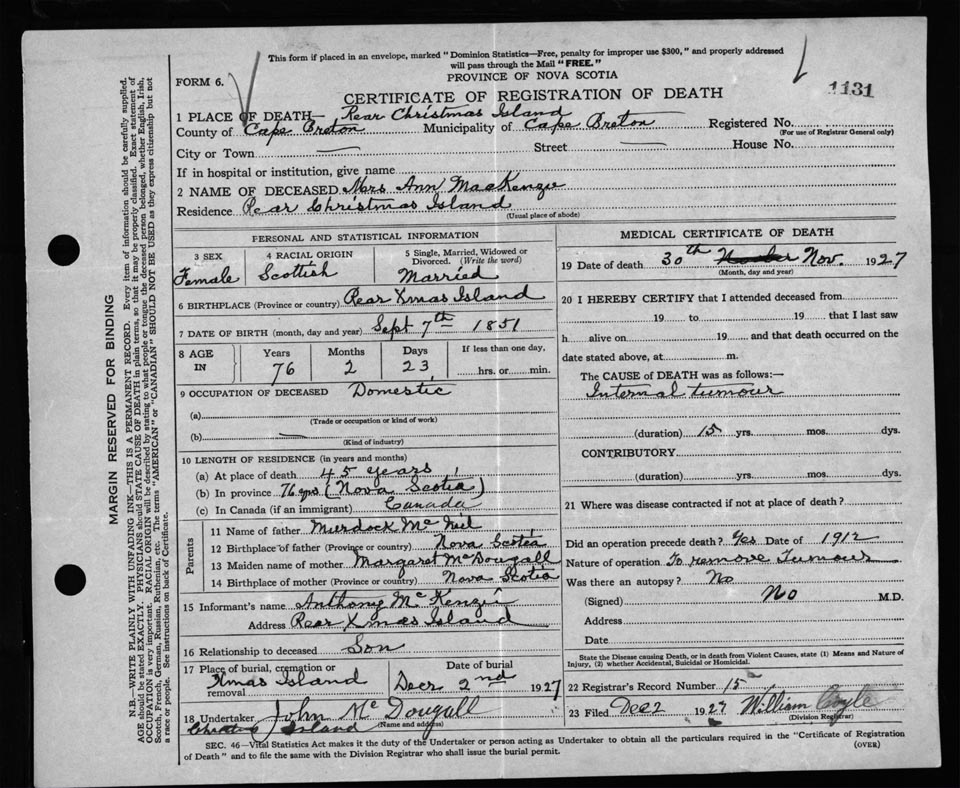 This form if placed in an envelope, marked "Dominion Statistics—Free, penalty for improper use $300," and properly addressed
will pass through the Mail "FREE."
FORM 6.
PROVINCE OF NOVA SCOTIA
1131
CERTIFICATE OF REGISTRATION OF DEATH
1 PLACE OF DEATH— Rear Christmas Island
County of Cape Breton Municipality of Cape Breton Registered No.
(For use of Registrar General only)
City or Town Street House No.
If in hospital or institution, give name
2 NAME OF DECEASED Mrs Ann MacKenzie
Residence Rear Christmas Island
(Usual place of abode)
PERSONAL AND STATISTICAL INFORMATION
3 SEX
Female
4 RACIAL ORIGIN
Scottish
5 Single, Married, Widowed or
Divorced. (Write the word)
Married
6 BIRTHPLACE (Province or country) Rear Xmas Island
7 DATE OF BIRTH (month, day and year) Sept 7th 1851
8 AGE
IN
Years Months Days If less than one day,
76 2 23 hrs. or min.
9 OCCUPATION OF DECEASED Domestic
(a)
(Trade or occupation or kind of work)
(b)
(Kind of industry)
10 LENGTH OF RESIDENCE (in years and months)
(a) At place of death 45 years
(b) In province 76 yrs (Nova Scotia)
(c) In Canada (if an immigrant) Canada
Parents
11 Name of father Murdock Mc Neil
12 Birthplace of father (Province or country) Nova Scotia
13 Maiden name of mother Margaret McDougall
14 Birthplace of mother (Province or country) Nova Scotia
15 Informant's name Anthony Mc Kenzie
Address Rear Xmas Island
16 Relationship to deceased Son
17 Place of burial, cremation or
removal Xmas Island
Date of burial
Decr 2nd 1927
18 Undertaker John Mc Dougall
(Name and address)
Christmas Island
MEDICAL CERTIFICATE OF DEATH
19 Date of death 30th Nov. 1927
(Month, day and year)
20 I HEREBY CERTIFY that I attended deceased from
19 to 19 that I last saw
h alive on 19 and that death occurred on the
date stated above, at m.
The CAUSE of DEATH was as follows:—
Internal tumour
(duration) 15 yrs. mos. dys.
CONTRIBUTORY
(duration) yrs. mos. dys.
21 Where was disease contracted if not at place of death?
Did an operation precede death? Yes Date of 1912
Nature of operation To remove Tumour
Was there an autopsy? No
(Signed) No M.D.
Address
Date
State the Disease causing Death, or in death from Violent Causes, state (1) Means and Nature of
Injury, (2) whether Accidental, Suicidal or Homicidal.
22 Registrar's Record Number 15
23 Filed Dec 2 1927 William
(Division Registrar)
SEC. 46—Vital Statistics Act makes it the duty of the Undertaker or person acting as Undertaker to obtain all the particulars required in the "Certificate of Registration
of Death" and to file the same with the Division Registrar who shall issue the burial permit.
(OVER)
MARGIN RESERVED FOR BINDING
N.B.—WRITE PLAINLY WITH UNFADING INK—THIS IS A PERMANENT RECORD. Every item of information should be carefully supplied.
AGE should be stated EXACTLY. PHYSICIANS should STATE CAUSE OF DEATH in plain terms, so that it may be properly classified. Exact statement of
OCCUPATION is very important. RACIAL ORIGIN will be described by stating to what people or tongue the deceased person belonged, whether English, Irish,
Scotch, French, German, Russian, Ruthenian, etc. The terms "AMERICAN" or "CANADIAN" SHOULD NOT BE USED as they express citizenship but not
a race or people. See instructions on back of Certificate.